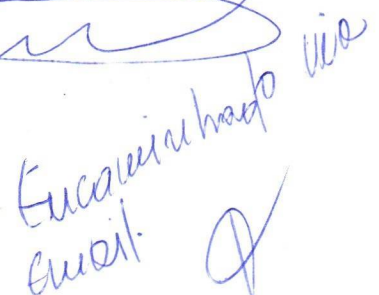 Encaminhado via
email.